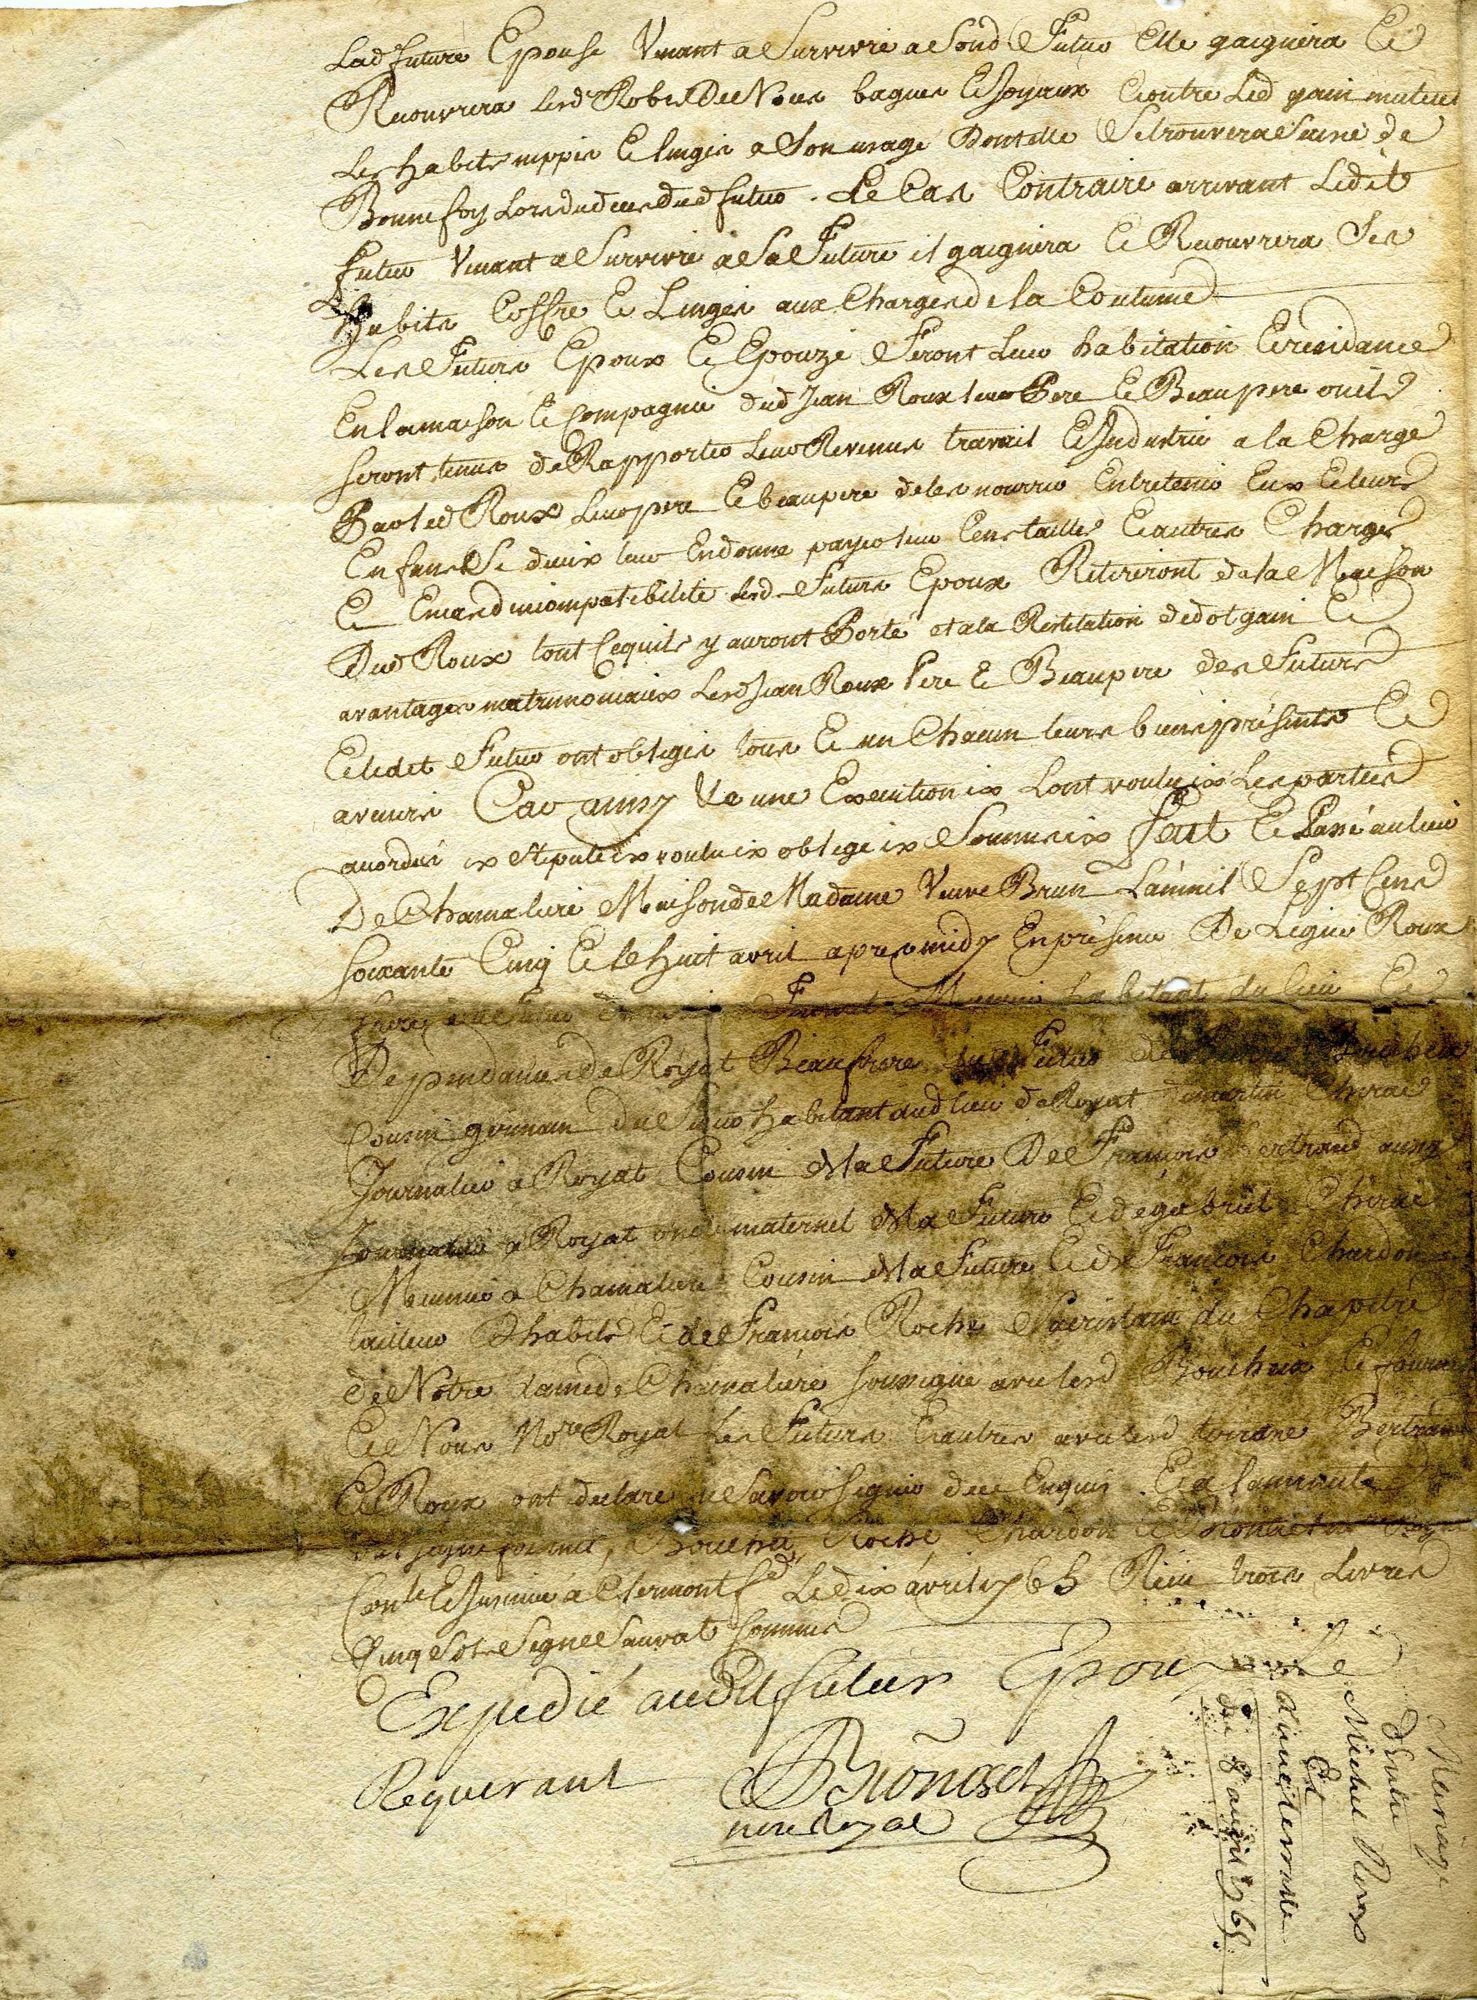 Lad future Epouse Venant a Survivre a Sond futur Elle gaignera Et
Recouvrera lesd Robes De Noce bagues Et Joyaux Contre Led gain mutuel
les habits nippes Et linges a Son usage Dontelle Setrouvera Saisie de
Bonne foy Lors dud deces dud futur . Le Cas Contraire arrivant Ledit
futur Venant a Survivre a Sa Future il gaignera Et Recouvrera Ses
habits Coffre Et Linges aux Charges de la Coutume
Les Futurs Epoux Et Epouze feront Leur habitation Et residance
En la maison Et Compagnie dud Jean Roux leur Pere Et Beaupere ou ils
seront tenus de Rapporter Leur Revenus travail Et Industrie a la Charge
Par led Roux Leur pere Et beaupere de les nourrir Entretenir Eux Et leurs
Enfans Si dieux leur En donne payer leur Cens tailles Et autres Charges
Et En cas dincompatibilité lesd Futurs Epoux Retireront de la Maison
Dud Roux tout Cequils y auront Porté et a la Restitution de dot gain Et
avantages matrimoniaux Led Jean Roux Pere Et Beaupere des Futurs
Et ledit Futur ont obligés tous Et un Chacun leurs biens présents Et
avenirs Car ainsy Execution ix Lont voulu ix Les parties
acordés ix Stipulé ix voulu ix obligé ix Soumis ix Fait Et Passé au lieu
De Chamaliere Maison de Madame Veuve Brun Lan mil Sept Cens
soixante Cinq Et le huit avril apres midy En présence De Legier Roux
frere du futur Meunier habitant du lieu Et
Dependances de Royat Beaufrere dud Futur de
Cousin germain du futur habitant aud lieu de Royat de martin Chirac
Journalier a Royat Cousin de la Future De François Bertrand aussy
Journalier a Royat oncle maternel de la Future Et de gabriel Chirac
Meunier a Chamaliere Cousin de la Future Et de François Chardon
tailleur D habits Et de François Roche Sacristain du Chapitre
de Notre Dame de Chamaliere soussigné avec lesd Boucheix Et fournet
Et Nous Nore Royal Les Futurs Et autres avec lesd Bertrand
Et Roux ont declaré ne Savoir Signer de ce Enquis . Et a la minute
Signe fournet, Boucheix, Roche, Chardon Et
Conlé Et Insinué a Clermont fd Le dix avril 1765 Reçu trois Livres
Cinq Sols Signé Sauvat Commis
Expedié audit futur Epoux Le
Requerant
nore Royal
Mariage
d'Entre
Michel Roux
Et
du 8 avril 1765